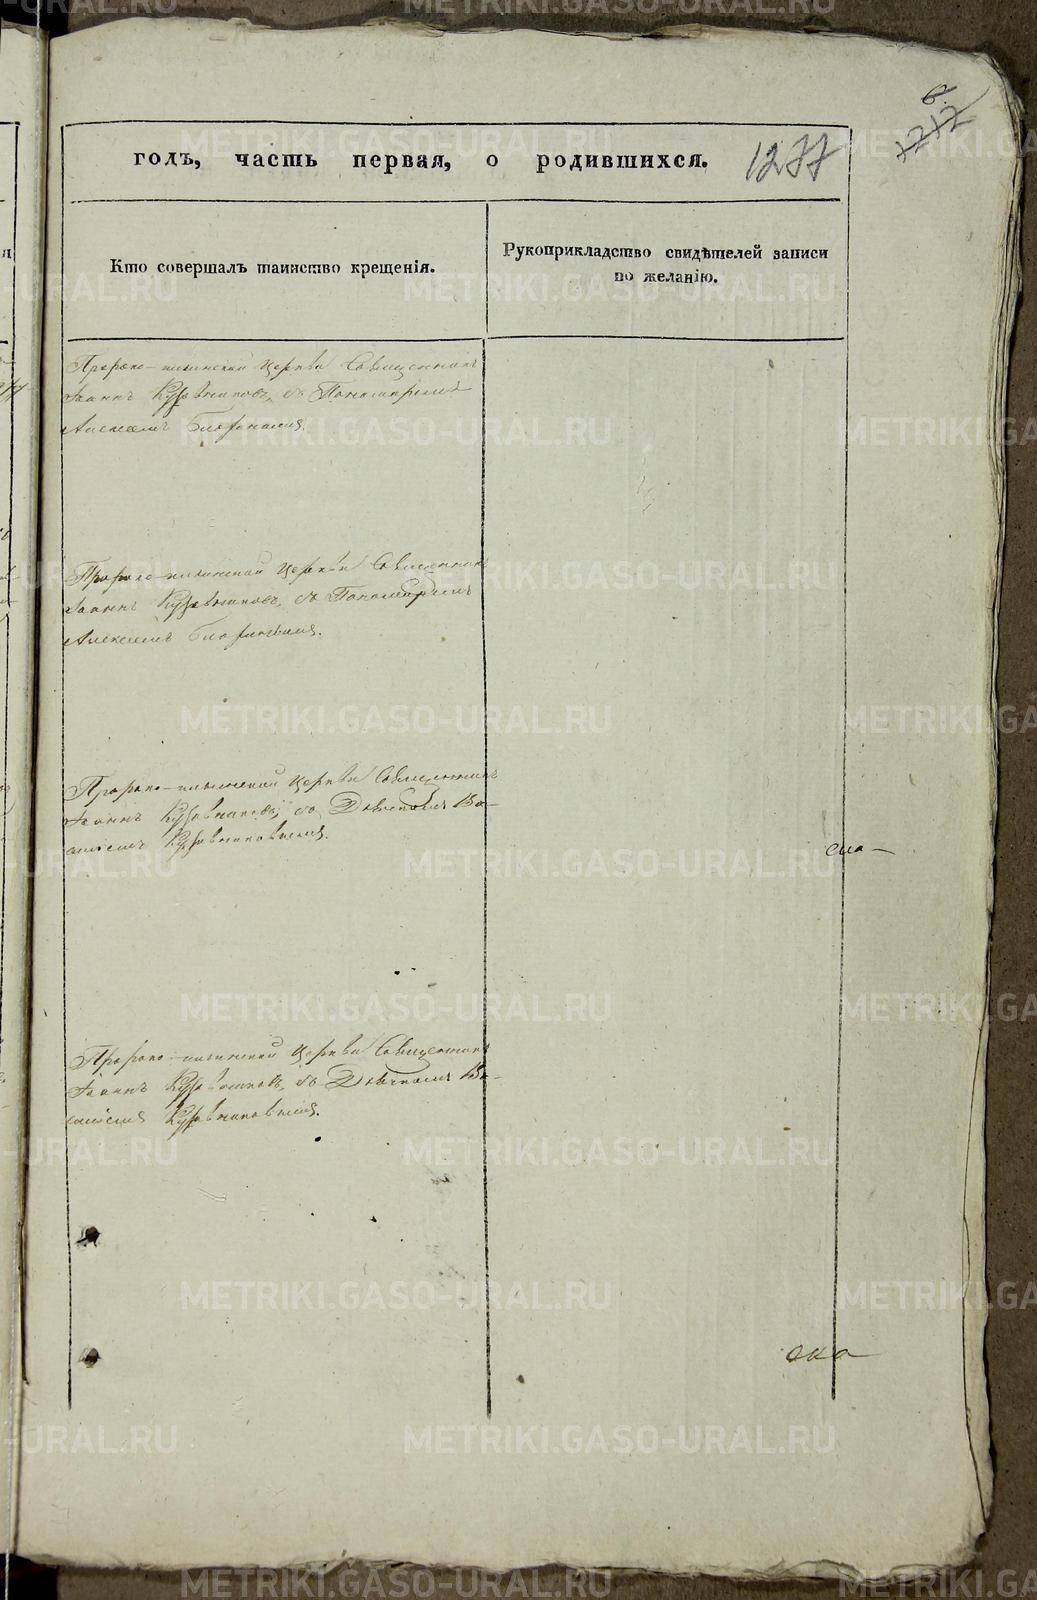 6.
1212
годъ, часть первая, о родившихся. 1277
Кто совершалъ таинство крещенія.
Рукоприкладство свидѣтелей записи
по желанію.
Пророко-ильинской церкви Священникъ
Іоаннъ Кузовниковъ, съ Пономаремъ
Алексѣемъ
Пророко-ильинской церкви Священникъ
Іоаннъ Кузовниковъ, съ Пономаремъ
Алексѣемъ
Пророко-ильинской церкви Священникъ
Іоаннъ Кузовниковъ, съ Дьячкомъ Ва-
силіемъ Кузовниковымъ.
Пророко-ильинской церкви Священникъ
Іоаннъ Кузовниковъ, съ Дьячкомъ Ва-
силіемъ Кузовниковымъ.
METRIKI.GASO-URAL.RU